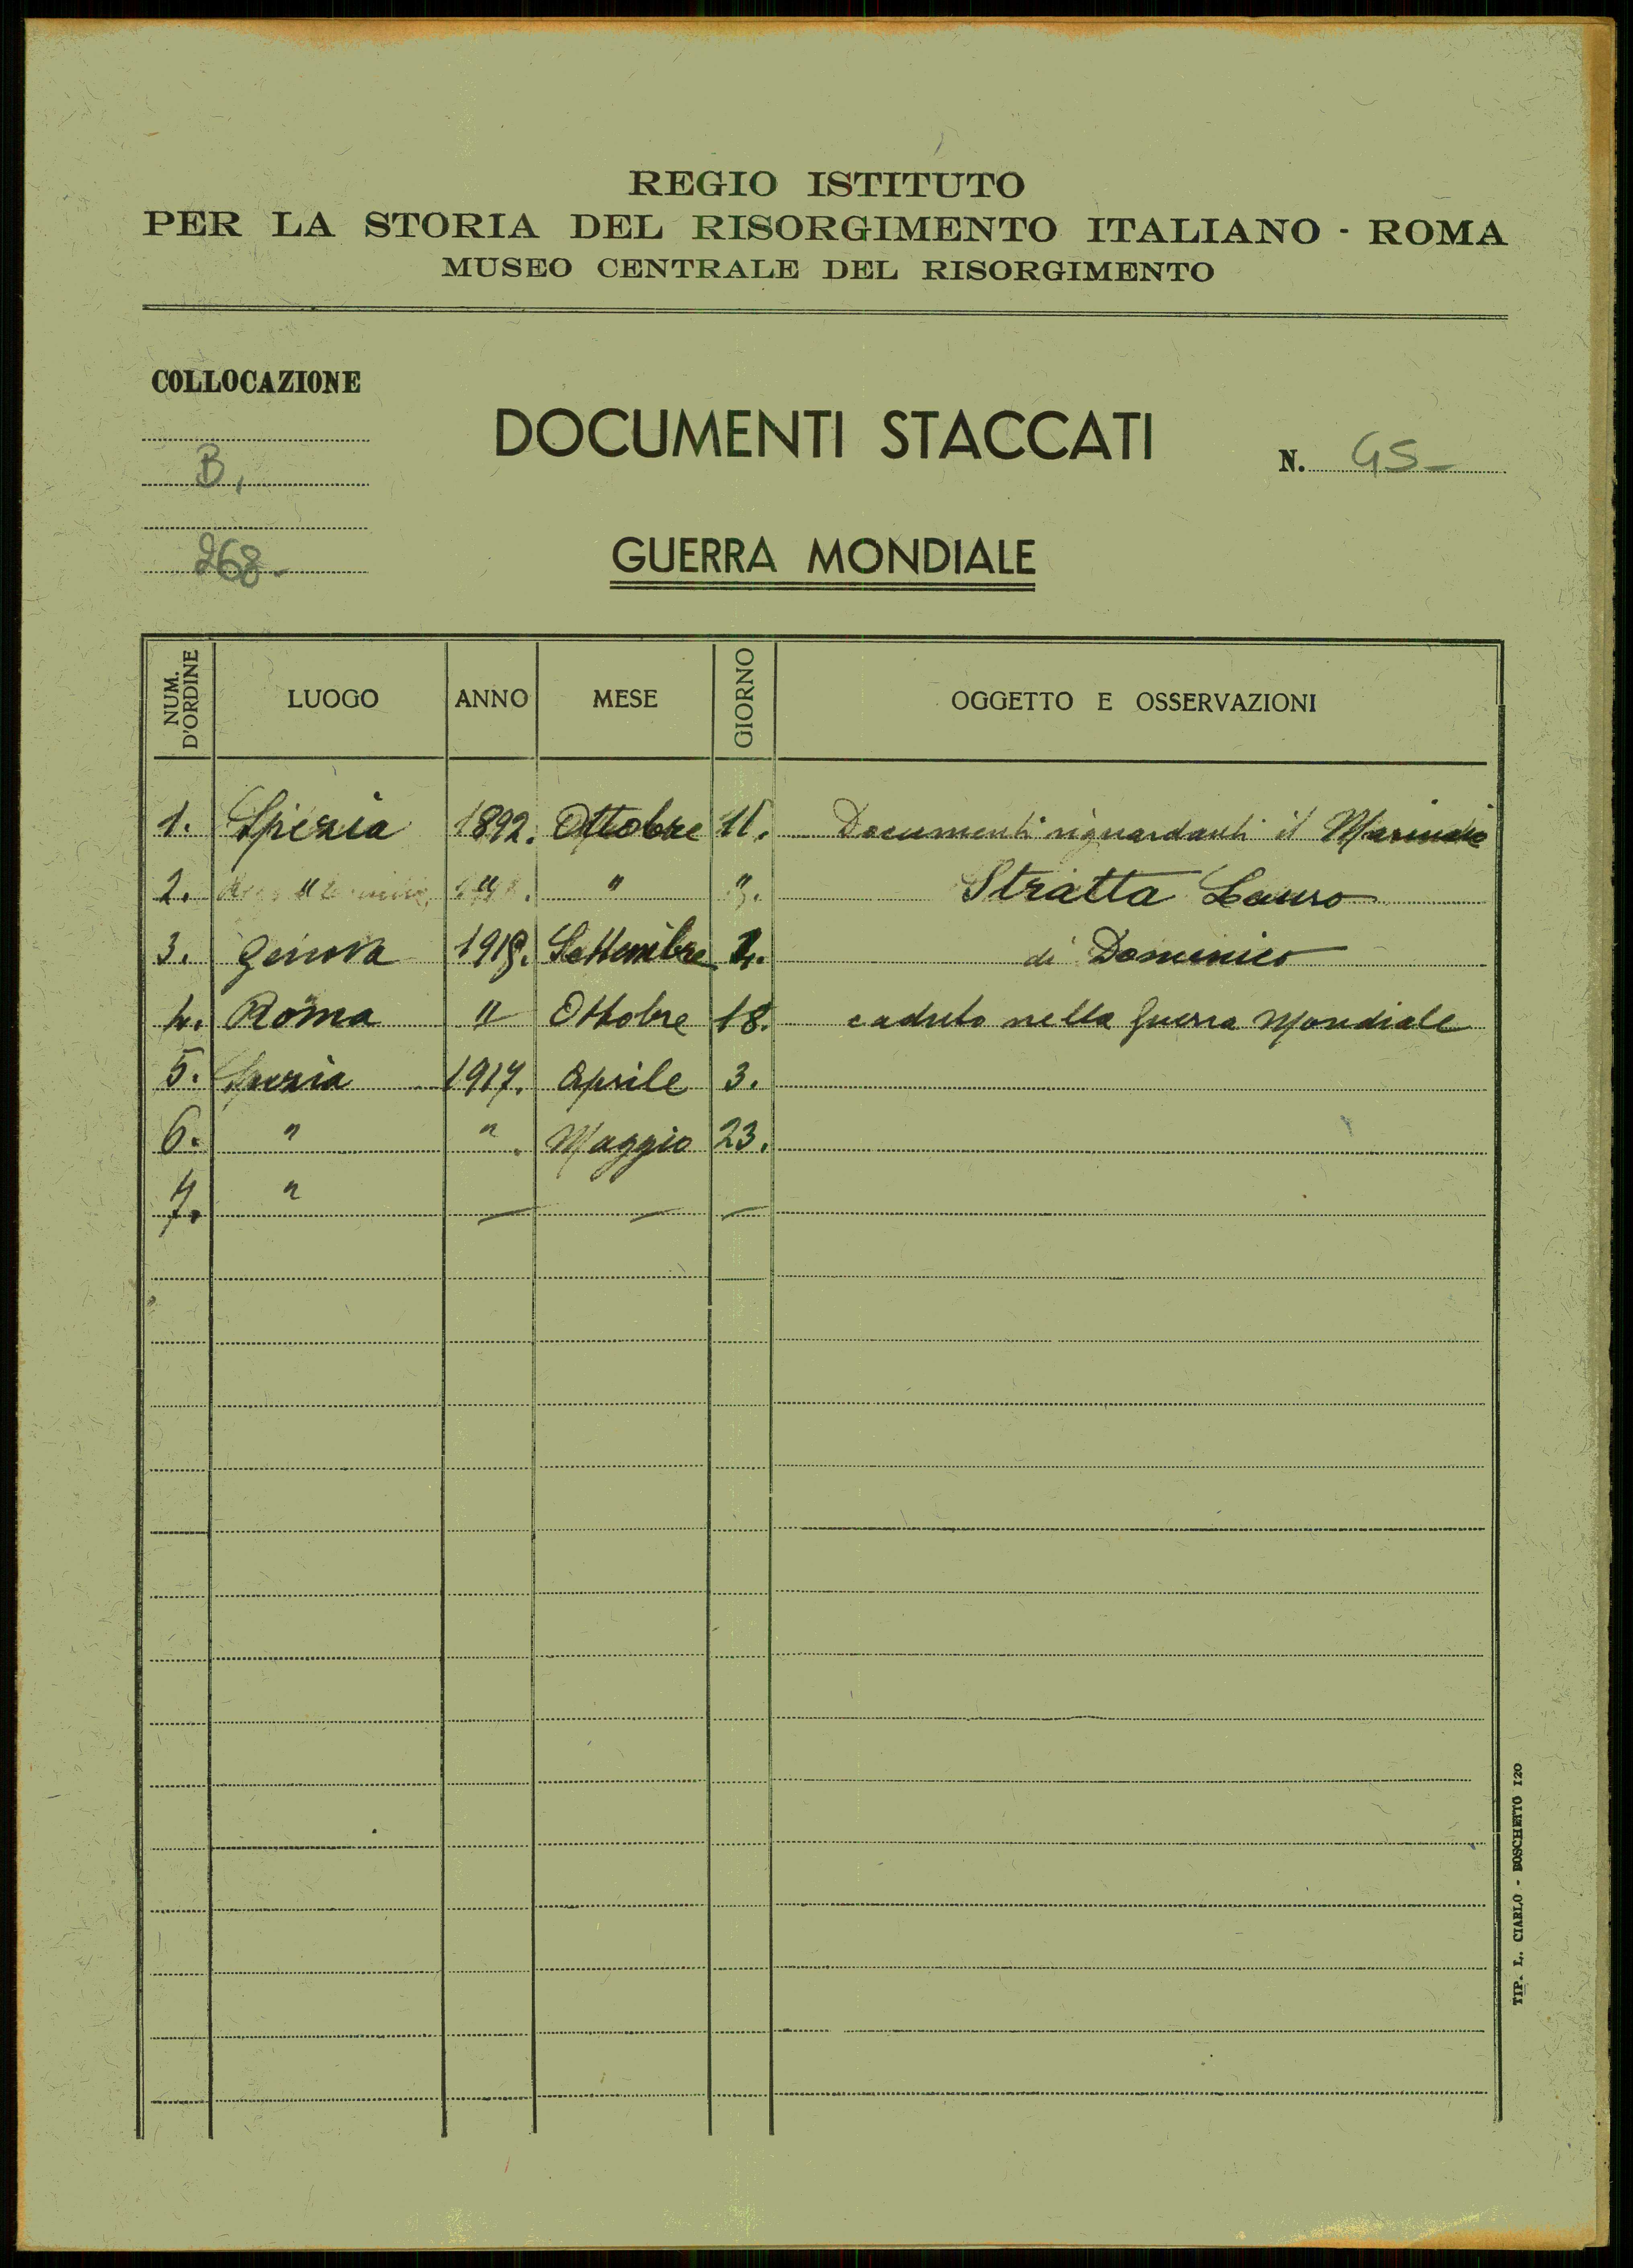 REGIO ISTITUTO
PER LA STORIA DEL RISORGIMENTO ITALIANO - ROMA
MUSEO CENTRALE DEL RISORGIMENTO
COLLOCAZIONE
B,
268-
DOCUMENTI STACCATI
N. GS-
GUERRA MONDIALE
NUM. D'ORDINE LUOGO ANNO MESE GIORNO OGGETTO E OSSERVAZIONI
1. Spezia 1892. Ottobre 11. Documenti riguardanti il Marinaio
2. " " " ". Stratta Lauso
3. Genova Settembre di Domenico
4. Roma " Ottobre 18. caduto nella Guerra Mondiale
5. Spezia 1917. Aprile 3.
6. " ". Maggio 23.
7. " — — —
TIP. L. CIARLO - BOSCHETTO 120